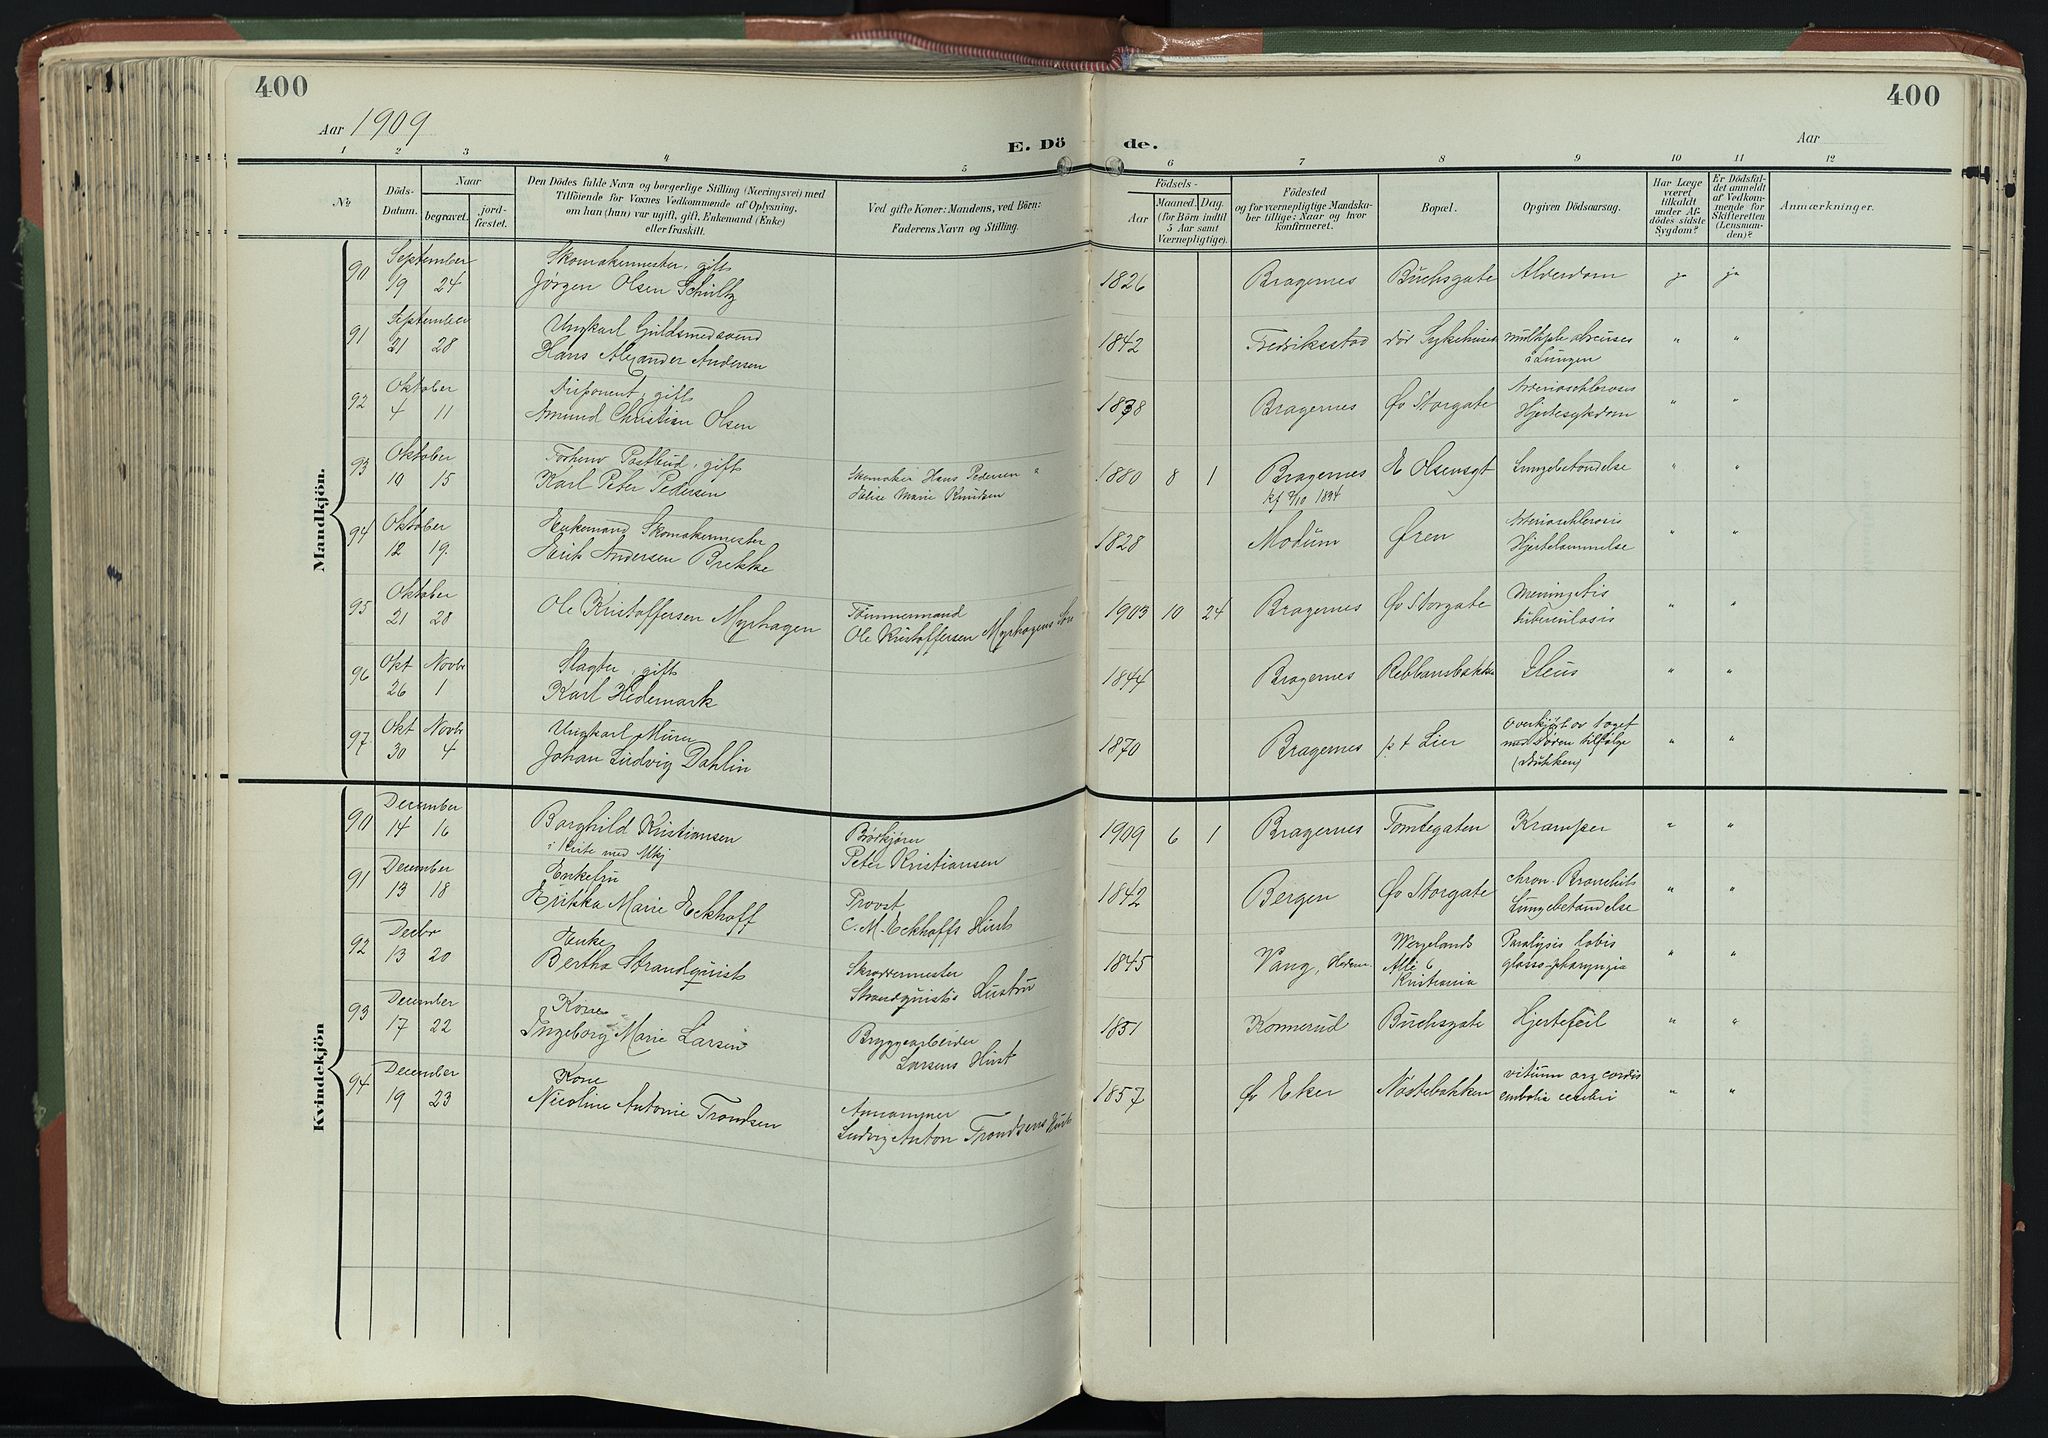 400
400
Aar 1909
E. Dö
de.
Aar
1 2 3 4 5 6 7 8 9 10 11 12
No
Döds-Datum.
Naar
begravet.
jord-fæstet.
Den Dödes fulde Navn og borgerlige Stilling (Næringsvei) med
Tilföiende for Voxnes Vedkommende af Oplysning,
om han (hun) var ugift, gift, Enkemand (Enke)
eller fraskilt.
Ved gifte Koner: Mandens, ved Börn:
Faderens Navn og Stilling.
Födsels-
Aar
Maaned. Dag.
(for Börn indtil
5 Aar samt
Værnepligtige).
Födested
og for værnepligtige Mandska-
ber tillige: Naar og hvor
konfirmeret.
Bopæl.
Opgiven Dödsaarsag.
Har Læge
været
tilkaldt
under Af-
dödes sidste
Sygdom?
Er Dödsfal-
det anmeldt
af Vedkom-
mende for
Skifteretten
(Lensman-
den)?
Anmærkninger.
Mandkjön.
90 September 19 24 Skomakermester, gift
Jørgen Olsen Schultz 1826 Bragernes Buchsgate Alderdom ja ja
91 September 21 28 Ungkarl Guldsmedsvend
Hans Alexander Andersen 1842 Fredriksstad Sykehuset multiple abscesses
i Lungen " "
92 Oktober 4 11 Disponent, gift
Amund Christian Olsen 1838 Bragernes Øv Storgate Arterioschlerosis
Hjertesykdom " "
93 Oktober 10 15 Forhenv Postbud, gift
Karl Peter Pedersen Skomaker Hans Pedersen
Marie Knudsen 1880 8 1 Bragernes
kf 1894 E Olsensgt Lungebetændelse " "
94 Oktober 12 19. Enkemand Skomakermester
Erik Andersen Brekke 1828 Modum Øren Arterioschlerosis
Hjertelammelse " "
95 Oktober 21 28 Ole Kristoffersen Myrhagen Tømmermand
Ole Kristoffersen Myrhagens Søn 1903 10 24 Bragernes Øv Storgate Meningitis
tuberculosis " "
96 Okt 26 Novbr 1 Slagter, gift
Karl Hedemark 1844 Bragernes Rebbansbakken Ileus " "
97. Okt 30 Novbr 4 Ungkarl Murer
Johan Ludvig Dahlin 1870 Bragernes p. t Lier Overkjørt av toget
med døden tilfølge
(Drukken) " "
Kvindekjön
90 December 14 16 Borghild Kristiansen
i kiste med Peter Kristiansen 1909 6 1 Bragernes Tomtegaten Kramper " "
91 December 13 18 Enkefru
Erikka Marie Eckhoff Provst
C. M. Eckhoffs Hust 1842 Bergen Øv Storgate chron. Bronchitis
Lungebetændelse " "
92 Decbr 13 20 Enke
Bertha Strandquist Skræddermester
Strandquists Hustru 1845 Vang, Hedem. Wergelands
Alle 6
Kristiania Paralysis labio
glosso-pharyngia " "
93 December 17 22 Kone
Ingeborg Marie Larsen Bryggearbeider
Larsens Hust 1851 Konnerud Buchsgate Hjertefeil " "
94 December 19 23 Kone
Nicoline Antonie Trondsen Ludvig Anton Trondsens Hust 1857 Øv Eker Nøstebakken vitium org cordis
embolia cerebri " "